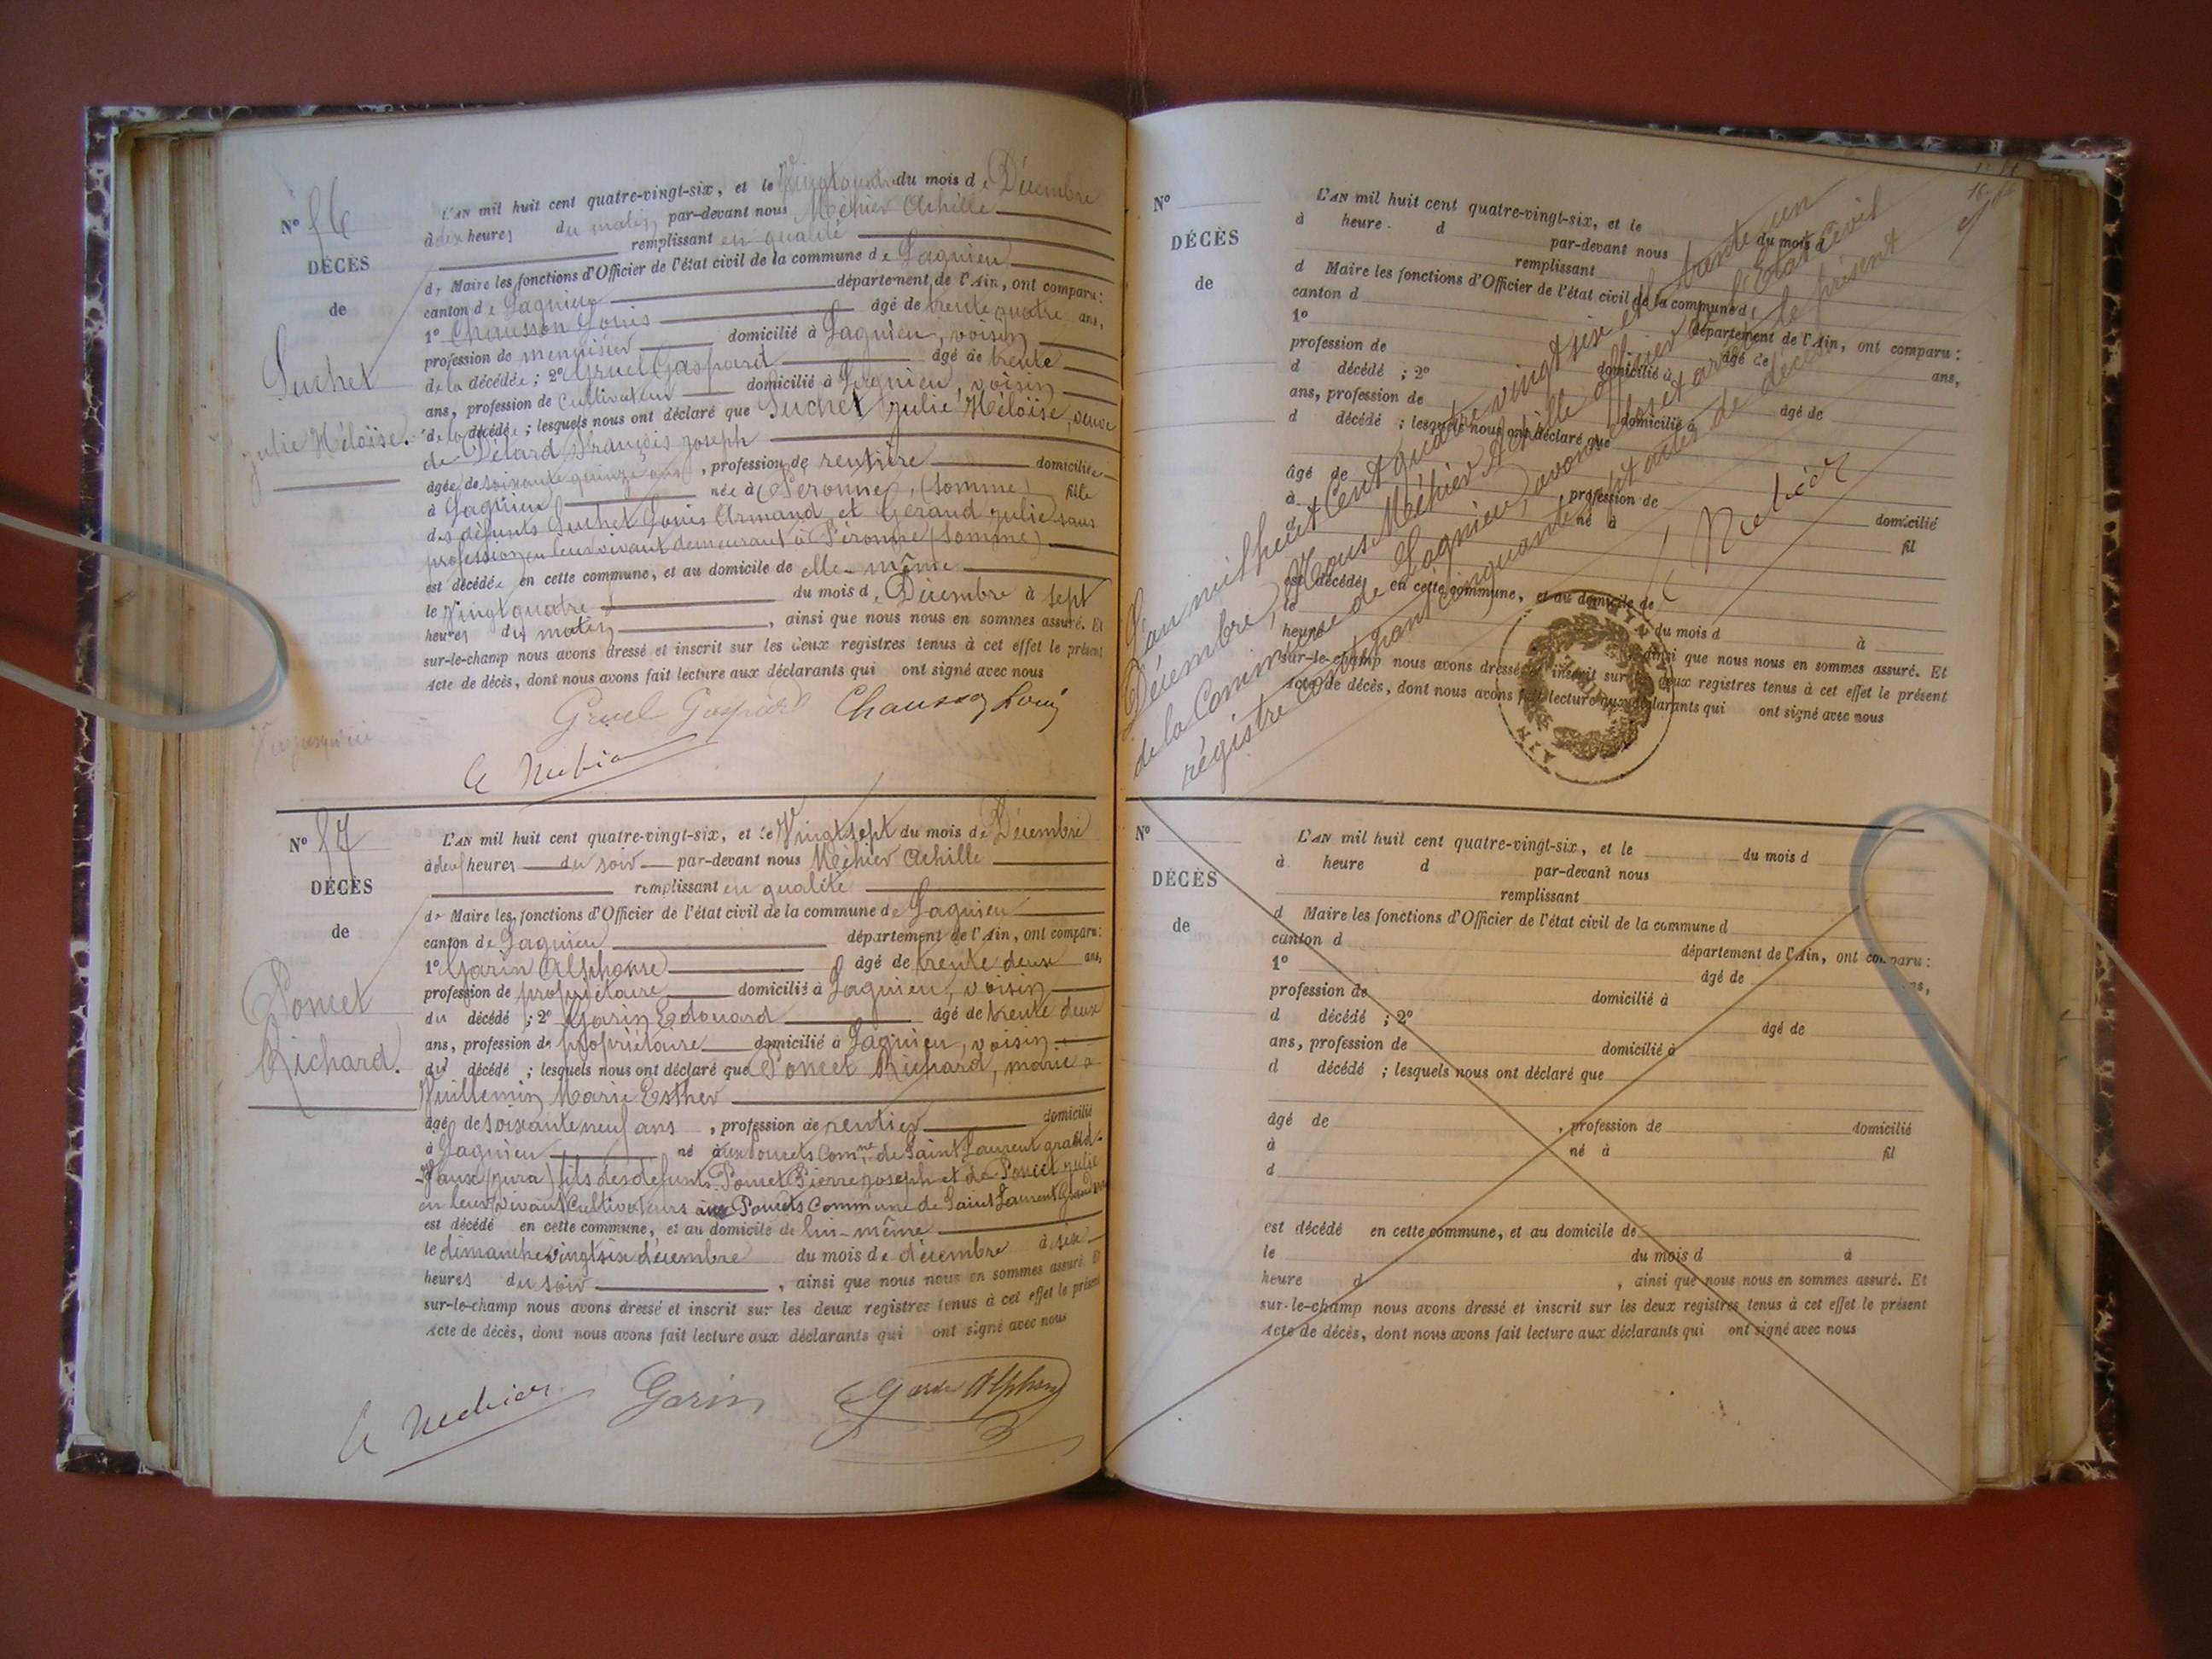 N° 56
DÉCÈS
de
Suchet
Julie Héloïse.
L'AN mil huit cent quatre-vingt-six, et le Vingt quatre du mois de Décembre
à dix heures du matin par-devant nous Méhier Achille
remplissant en qualité
de Maire les fonctions d'Officier de l'état civil de la commune de Lagnieu
canton de Lagnieu département de l'Ain, ont comparu :
1° Chausson Louis âgé de trente quatre ans,
profession de menuisier domicilié à Lagnieu, voisin
de la décédée ; 2° Gruel Gaspard âgé de trente
ans, profession de cultivateur domicilié à Lagnieu, voisin
de la décédée ; lesquels nous ont déclaré que Suchet Julie Héloïse, veuve
de Délard François Joseph
âgée de soixante quinze ans, profession de rentière domiciliée
à Lagnieu née à Péronne, (Somme) fille
des défunts Suchet Louis Armand et Gérand Julie sans
profession en leur vivant demeurant à Péronne (Somme)
est décédée en cette commune, et au domicile de elle-même
le Vingt quatre du mois de Décembre à sept
heures du matin, ainsi que nous nous en sommes assuré. Et
sur-le-champ nous avons dressé et inscrit sur les deux registres tenus à cet effet le présent
Acte de décès, dont nous avons fait lecture aux déclarants qui ont signé avec nous
Gruel Gaspard Chausson Louis
A Mehier
N° 57
DÉCÈS
de
Poncet
Richard.
L'AN mil huit cent quatre-vingt-six, et le Vingt sept du mois de Décembre
à deux heures du soir par-devant nous Méhier Achille
remplissant en qualité
de Maire les fonctions d'Officier de l'état civil de la commune de Lagnieu
canton de Lagnieu département de l'Ain, ont comparu :
1° Garin Alphonse âgé de trente deux ans,
profession de propriétaire domicilié à Lagnieu, voisin
du décédé ; 2° Garin Edouard âgé de trente deux
ans, profession de propriétaire domicilié à Lagnieu, voisin
du décédé ; lesquels nous ont déclaré que Poncet Richard, marié à
Vuillemin Marie Esther
âgé de soixante neuf ans, profession de rentier domicilié
à Lagnieu né aux Poncets Comne de Saint Laurent grand-
Vaux (Jura) fils des défunts Poncet Pierre Joseph et de Poncet Julie
en leur vivant cultivateurs aux Poncets Commune de Saint Laurent Grand
est décédé en cette commune, et au domicile de lui-même
le dimanche vingt six décembre du mois de décembre à six
heures du soir, ainsi que nous nous en sommes assuré. Et
sur-le-champ nous avons dressé et inscrit sur les deux registres tenus à cet effet le présent
Acte de décès, dont nous avons fait lecture aux déclarants qui ont signé avec nous
A Mehier Garin Garin Alphonse
N°
DÉCÈS
de
L'AN mil huit cent quatre-vingt-six, et le du mois d
à heure d par-devant nous
remplissant
d Maire les fonctions d'Officier de l'état civil de la commune d
canton d département de l'Ain, ont comparu :
1° âgé de ans,
profession de domicilié à
d décédé ; 2° âgé de
ans, profession de domicilié à
d décédé ; lesquels nous ont déclaré que
âgé de profession de domicilié
à né à fil
d
est décédé en cette commune, et au domicile de
le du mois d à
heure ainsi que nous nous en sommes assuré. Et
sur-le-champ nous avons dressé et inscrit sur les deux registres tenus à cet effet le présent
Acte de décès, dont nous avons fait lecture aux déclarants qui ont signé avec nous
L'an mil huit cent quatre vingt six et le trente un
Décembre, Nous Méhier Achille officier de l'Etat Civil
de la Commune de Lagnieu, avons clos et arrêté le présent
régistre contenant cinquante sept actes de décès
Mehier
N°
DÉCÈS
de
L'AN mil huit cent quatre-vingt-six, et le du mois d
à heure d par-devant nous
remplissant
d Maire les fonctions d'Officier de l'état civil de la commune d
canton d département de l'Ain, ont comparu :
1° âgé de ans,
profession de domicilié à
d décédé ; 2° âgé de
ans, profession de domicilié à
d décédé ; lesquels nous ont déclaré que
âgé de , profession de domicilié
à né à fil
d
est décédé en cette commune, et au domicile de
le du mois d à
heure d , ainsi que nous nous en sommes assuré. Et
sur-le-champ nous avons dressé et inscrit sur les deux registres tenus à cet effet le présent
Acte de décès, dont nous avons fait lecture aux déclarants qui ont signé avec nous